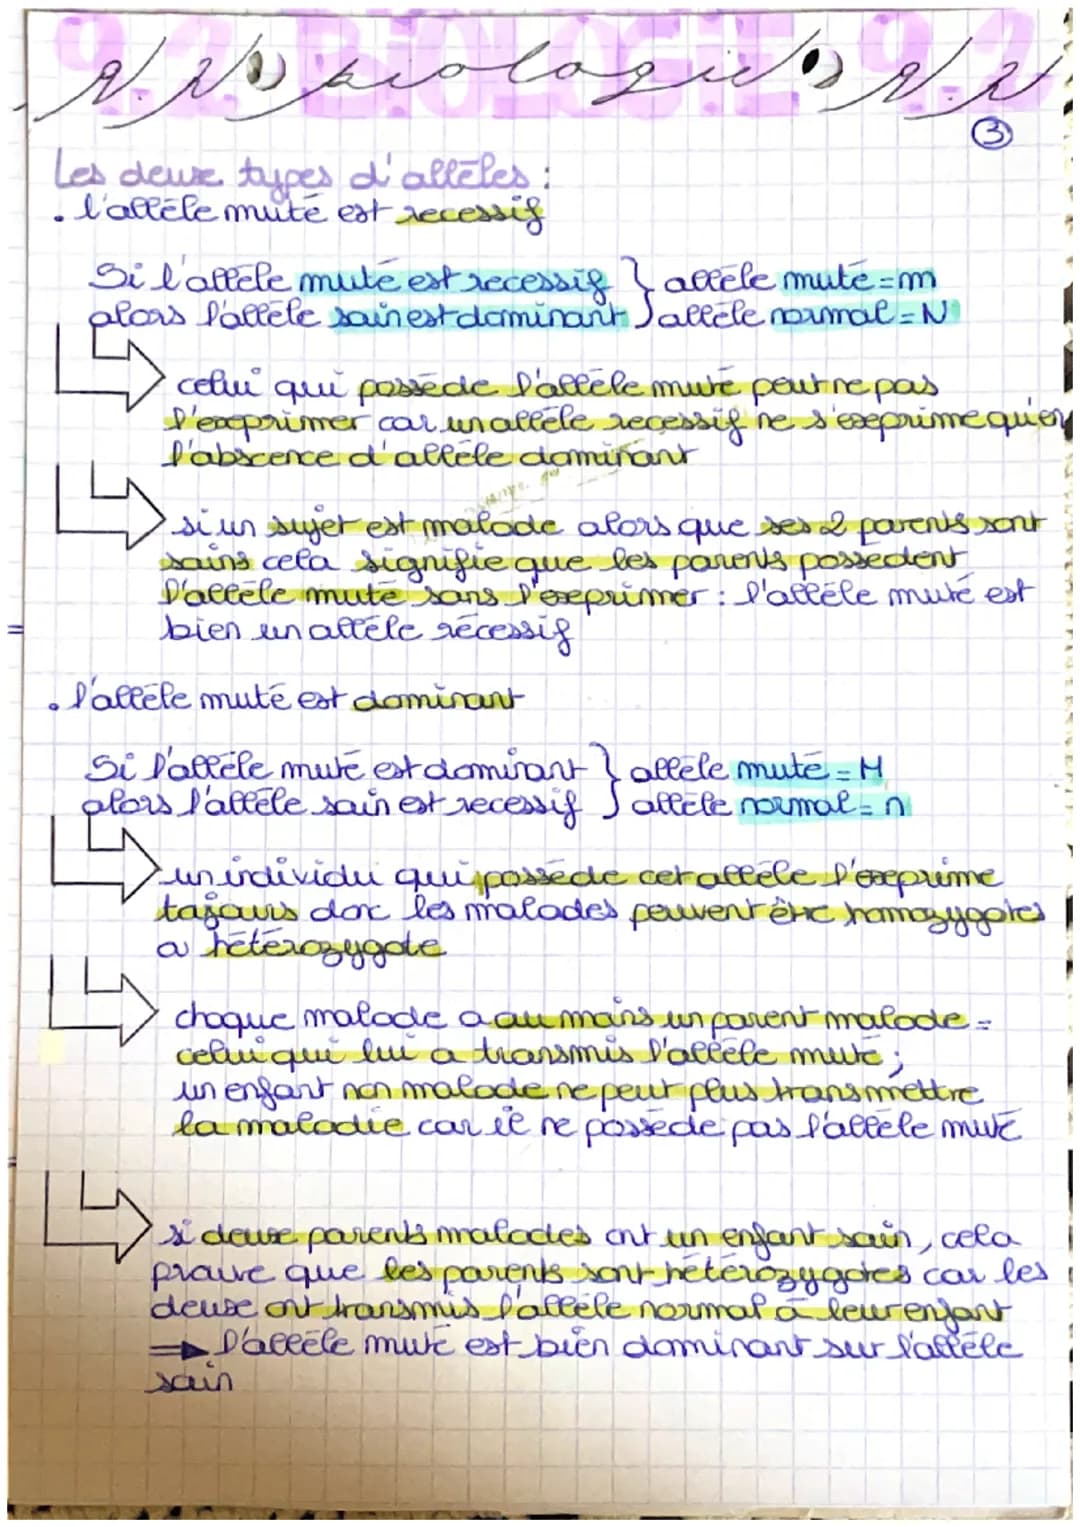 9.2 BIOLOGIE 9.2
9.2 biologie 9.2
3
Les deux types d'allèles :
. l'allèle muté est recessif
Si l'allèle muté est recessif } allèle muté = m
alors l'allèle sain est dominant } allèle normal = N
celui qui possède l'allèle muté peut ne pas
l'exprimer car un allèle recessif ne s'exprime qu'en
l'abscence d'allèle dominant
si un sujet est malade alors que ses 2 parents sont
sains cela signifie que les parents possedent
l'allèle muté sans l'exprimer : l'allèle muté est
bien un allèle récessif
. l'allèle muté est dominant
Si l'allèle muté est dominant } allèle muté = M
alors l'allèle sain est recessif } allèle normal = n
un individu qui possède cet allèle l'exprime
toujours donc les malades peuvent être homozygotes
ou hétérozygote
chaque malade a au moins un parent malade =
celui qui lui a transmis l'allèle muté ;
un enfant non malade ne peut plus transmettre
la maladie car il ne possède pas l'allèle muté
si deux parents malades ont un enfant sain, cela
prouve que les parents sont hétérozygotes car les
deux ont transmis l'allèle normal à leur enfant
→ l'allèle muté est bien dominant sur l'allèle
sain